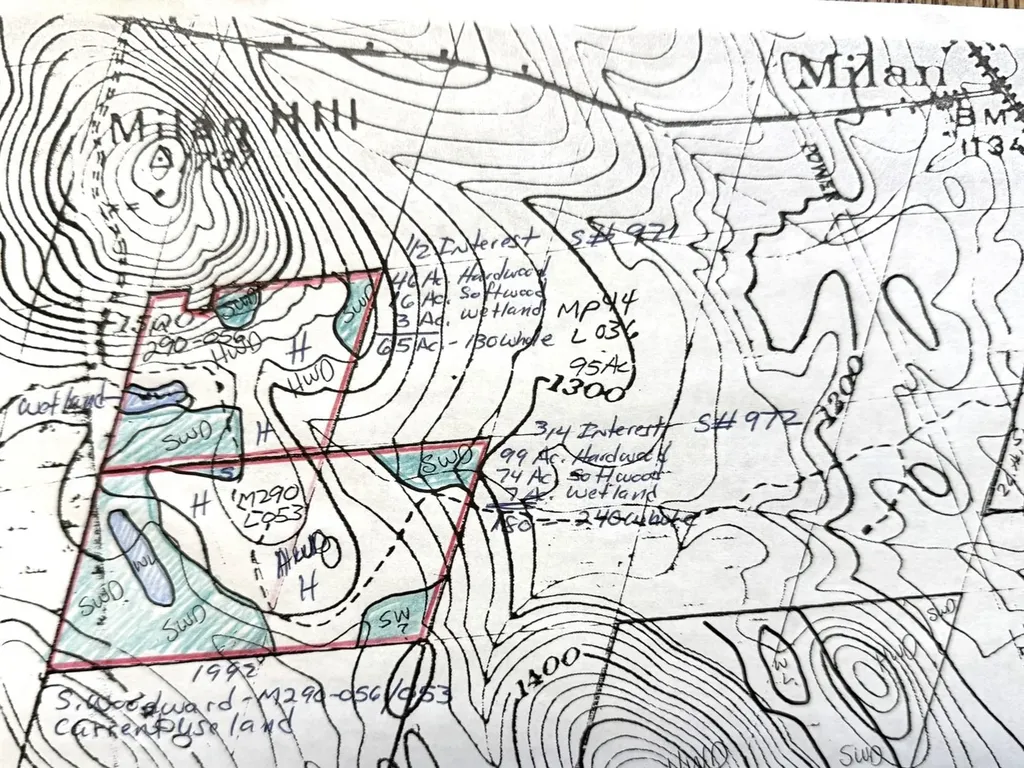 Milan
Milan Hill
1737
BM
1134
1/2 Interest S# 971
46 Ac. Hardwood
16 Ac. Softwood
3 Ac. wetland
65 Ac - 130 whole
MP44
L 036
95 Ac
1300
1200
SWD
SWD
290-056
HWD
H
HWD
wetland
SWD
H
3/4 Interest S# 972
99 Ac. Hardwood
74 Ac. Softwood
7 Ac. wetland
180 - 240 whole
SWD
H
M290
L053
HWD
H
SWD
SWD
SW
1400
SWD
HWD
1992
S. Woodward - M290-056/053
Current Use land
HWD
SWD